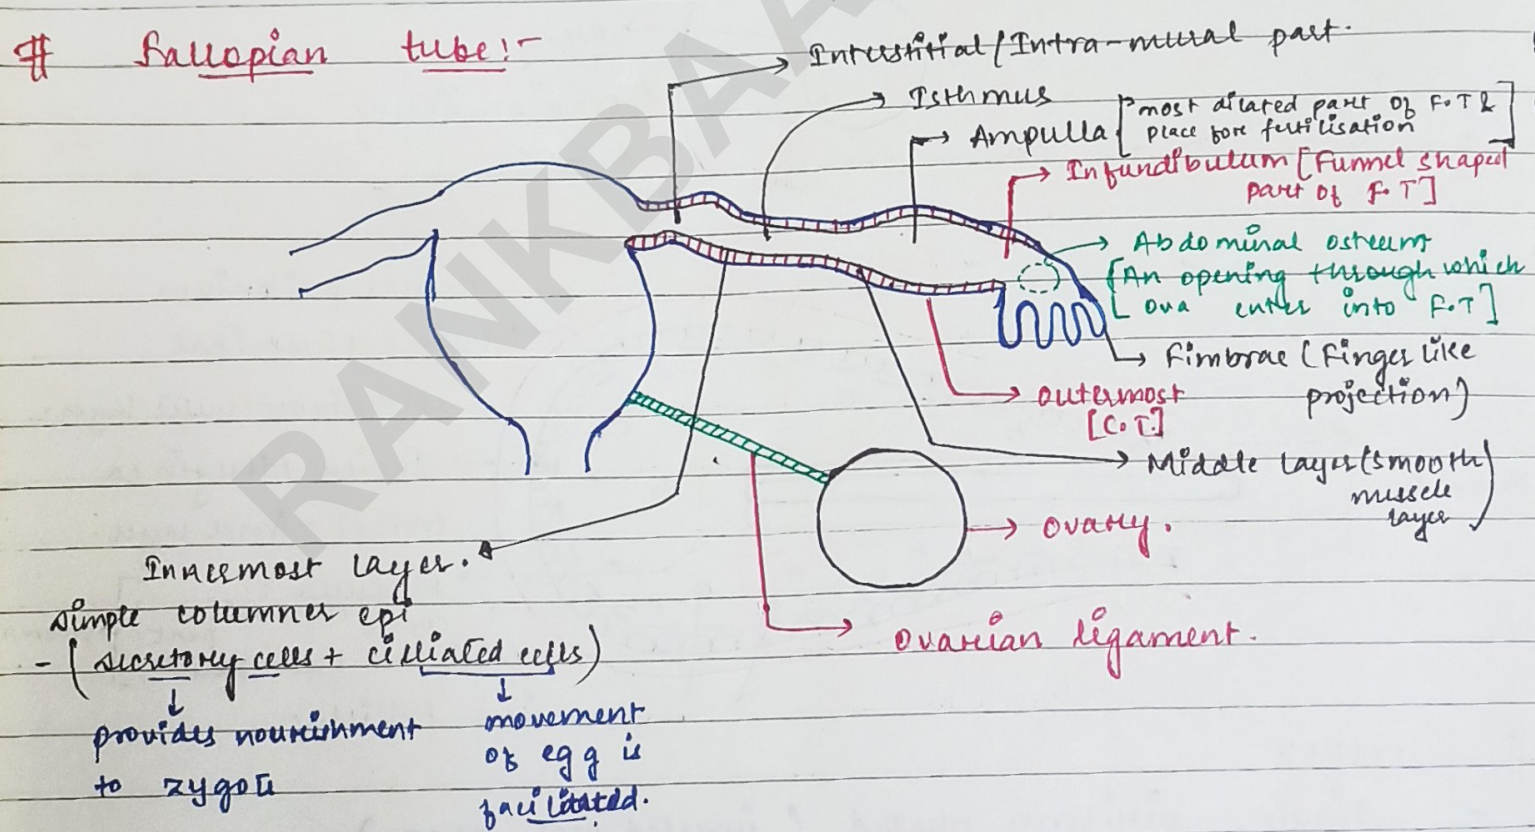 # Fallopian tube:-
Interstitial/Intra-mural part.
Isthmus
Ampulla [most dilated part of F.T &
place fore fertilisation]
Infundibulum [Funnel shaped
part of F.T]
Abdominal osteum
[An opening through which
ova enters into F.T]
Fimbrae (Finger like
projection)
outermost
[C.T.]
Middle layer (smooth
muscle
layer)
ovary.
ovarian ligament.
Innermost layer.
simple columner epi
- (secretory cells + cilliated cells)
provides nourishment
to zygote
movement
of egg is
facilitated.
RANKBAA